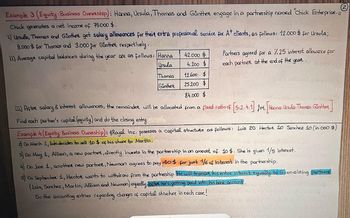 Example 3 (Equity Business Ownership): Hanna, Ursula, Thomas and Günther engage in a partnership named "Chick Enterprise".
Chick generates a net income of 75.000 $.
i) Ursula, Thomas and Günther get salary allowances for their extra professional service for A+ clients, as follows: 12.000 $ for Ursula;
9.000 $ for Thomas and 3.000 for Günther, respectively.
ii) Average capital balances during the year are as follows:
Hanna 42.000 $
Ursula 4.200 $
Thomas 12.600 $
Günther 25.200 $
84.000 $
Partners agreed for a % 25 interest allowance for
each partner at the end of the year.
iii) After salary & interest allowances, the remainder will be allocated from a fixed ratio of 5:2:4:1 for Hanna Ursula Thomas Günther
Find each partner's capital (equity) and do the closing entry.
Example 4 (Equity Business Ownership): Illegal Inc. possess a capital structure as follows: Luis 20 Hector 20 Sanchez 20 (in 000 $)
1) On March 1, Luis decides to sell 10 $ of his share to Martin.
2) On May 1, Allison, a new partner, directly invests in the partnership in an amount of 20 $. She is given 1/5 interest.
3) On June 1, another new partner, Neuman agrees to pay 40 $ for just 1/6 of interest in the partnership.
4) On September 1, Hector wants to withdraw from the partnership.
(Luis, Sanchez, Martin, Allison and Neuman) equally
Do the accounting entries regarding changes of capital structure in each case!